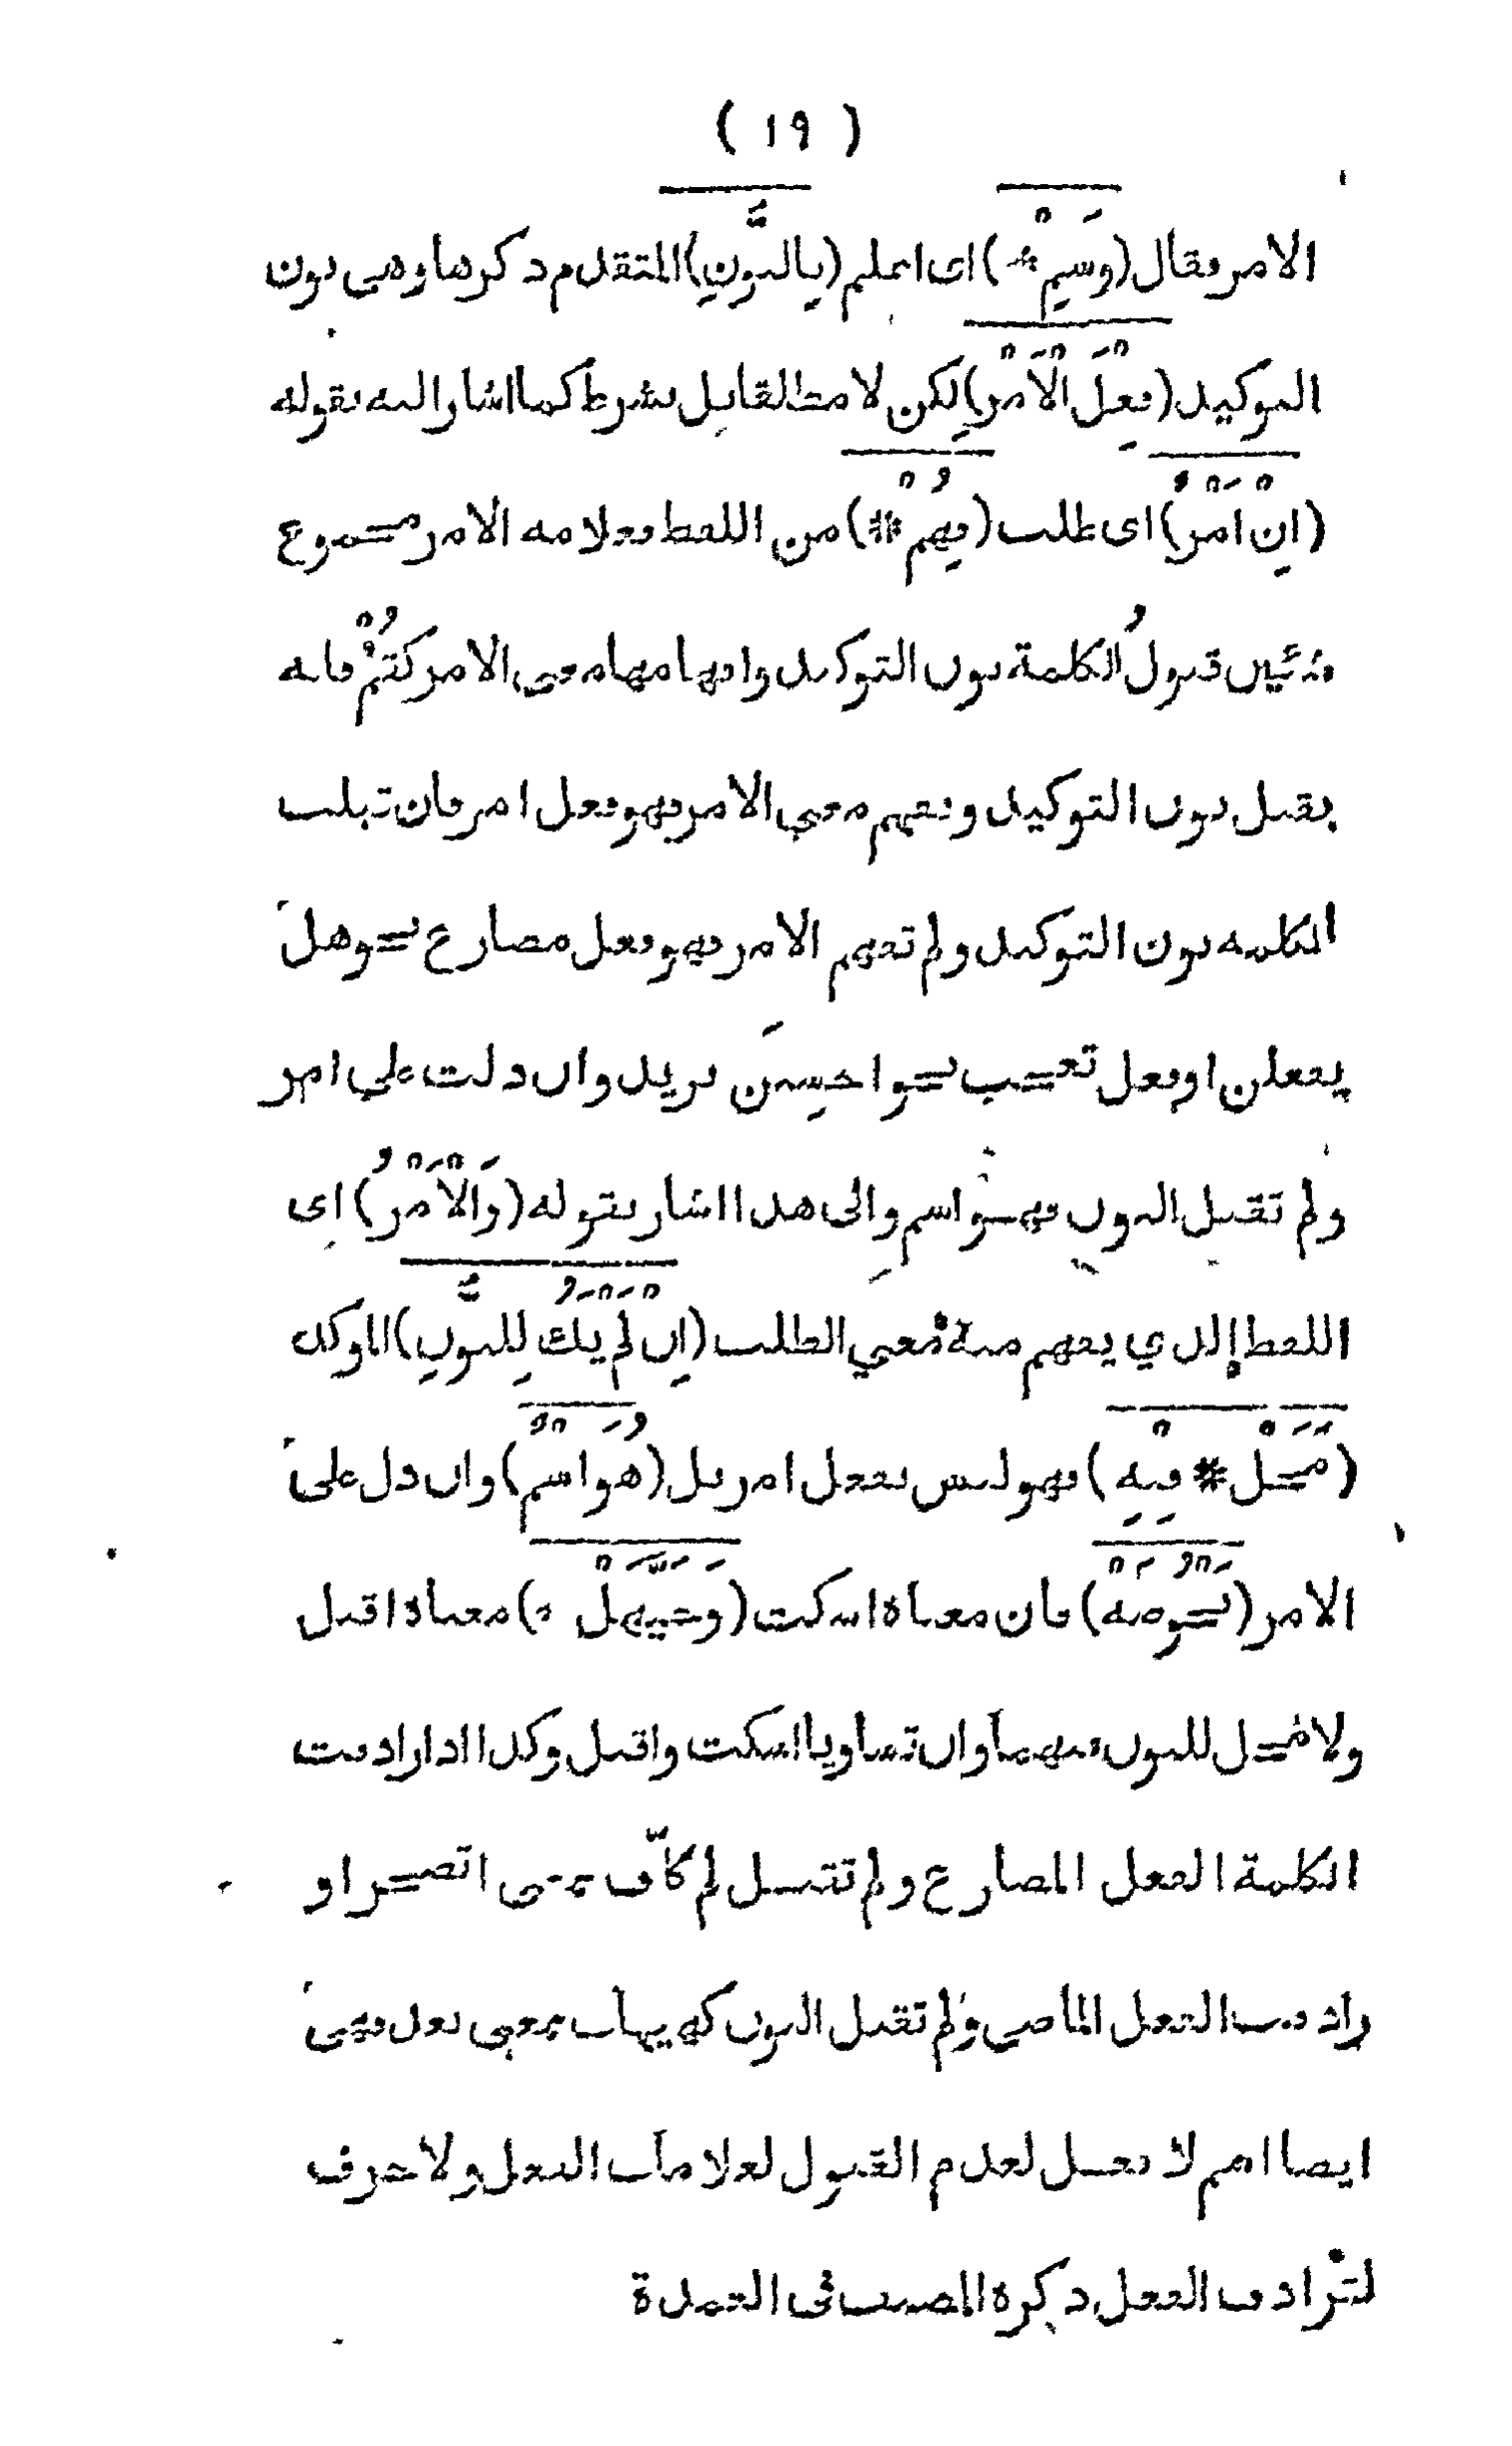 ( ١٩ )
الامر فقال (وَسِمْ *) اى اعلم (بِالنُّونِ) المتقدم ذكرها وهى نون
التوكيد (فِعْلَ الْأَمْرِ) لكن لا مطلقا بل بشرط كما اشار اليه بقوله
(اِنْ اَمْرٌ) اى طلب (فُهِمْ *) من اللفظ فعلامة الامر مجموع
شيئين قبولُ الكلمة نون التوكيد وافهامها معنى الامر كقُمْ فانه
يقبل نون التوكيد ويفهم معنى الامر فهو فعل امر فان قبلت
الكلمة نون التوكيد ولم تفهم الامر فهو فعل مضارع نحو هل
يفعلن او فعل تعجب نحو احسِنَن بزيد وان دلت على امر
ولم تقبل النون فهو اسم والى هذا اشار بقوله (وَالْأَمْرُ) اى
اللفظ الذي يفهم منه معنى الطلب (اِنْ لَمْ يَكُ لِلنُّونِ) المؤكد
(مَحَلْ * فِيْهِ) فهو ليس بفعل امر بل (هُوَ اسْمٌ) وان دل على
الامر (نَحْوُ صَهْ) فان معناه اسكت (وَحَيَّهَلْ *) معناه اقبل
ولا محل للنون فيهما وان تساويا اسكت واقبل وكذا اذا رادفت
الكلمة الفعل المضارع ولم تقبل لم كأُفّ بمعنى اتضجر او
رادفت الفعل الماضي ولم تقبل النون كهيهات بمعنى بعد فهى
ايضا اسم لا فعل لعدم القبول لعلامات الفعل ولا حرف
لترادف الفعل ذكره المصنف فى العمدة